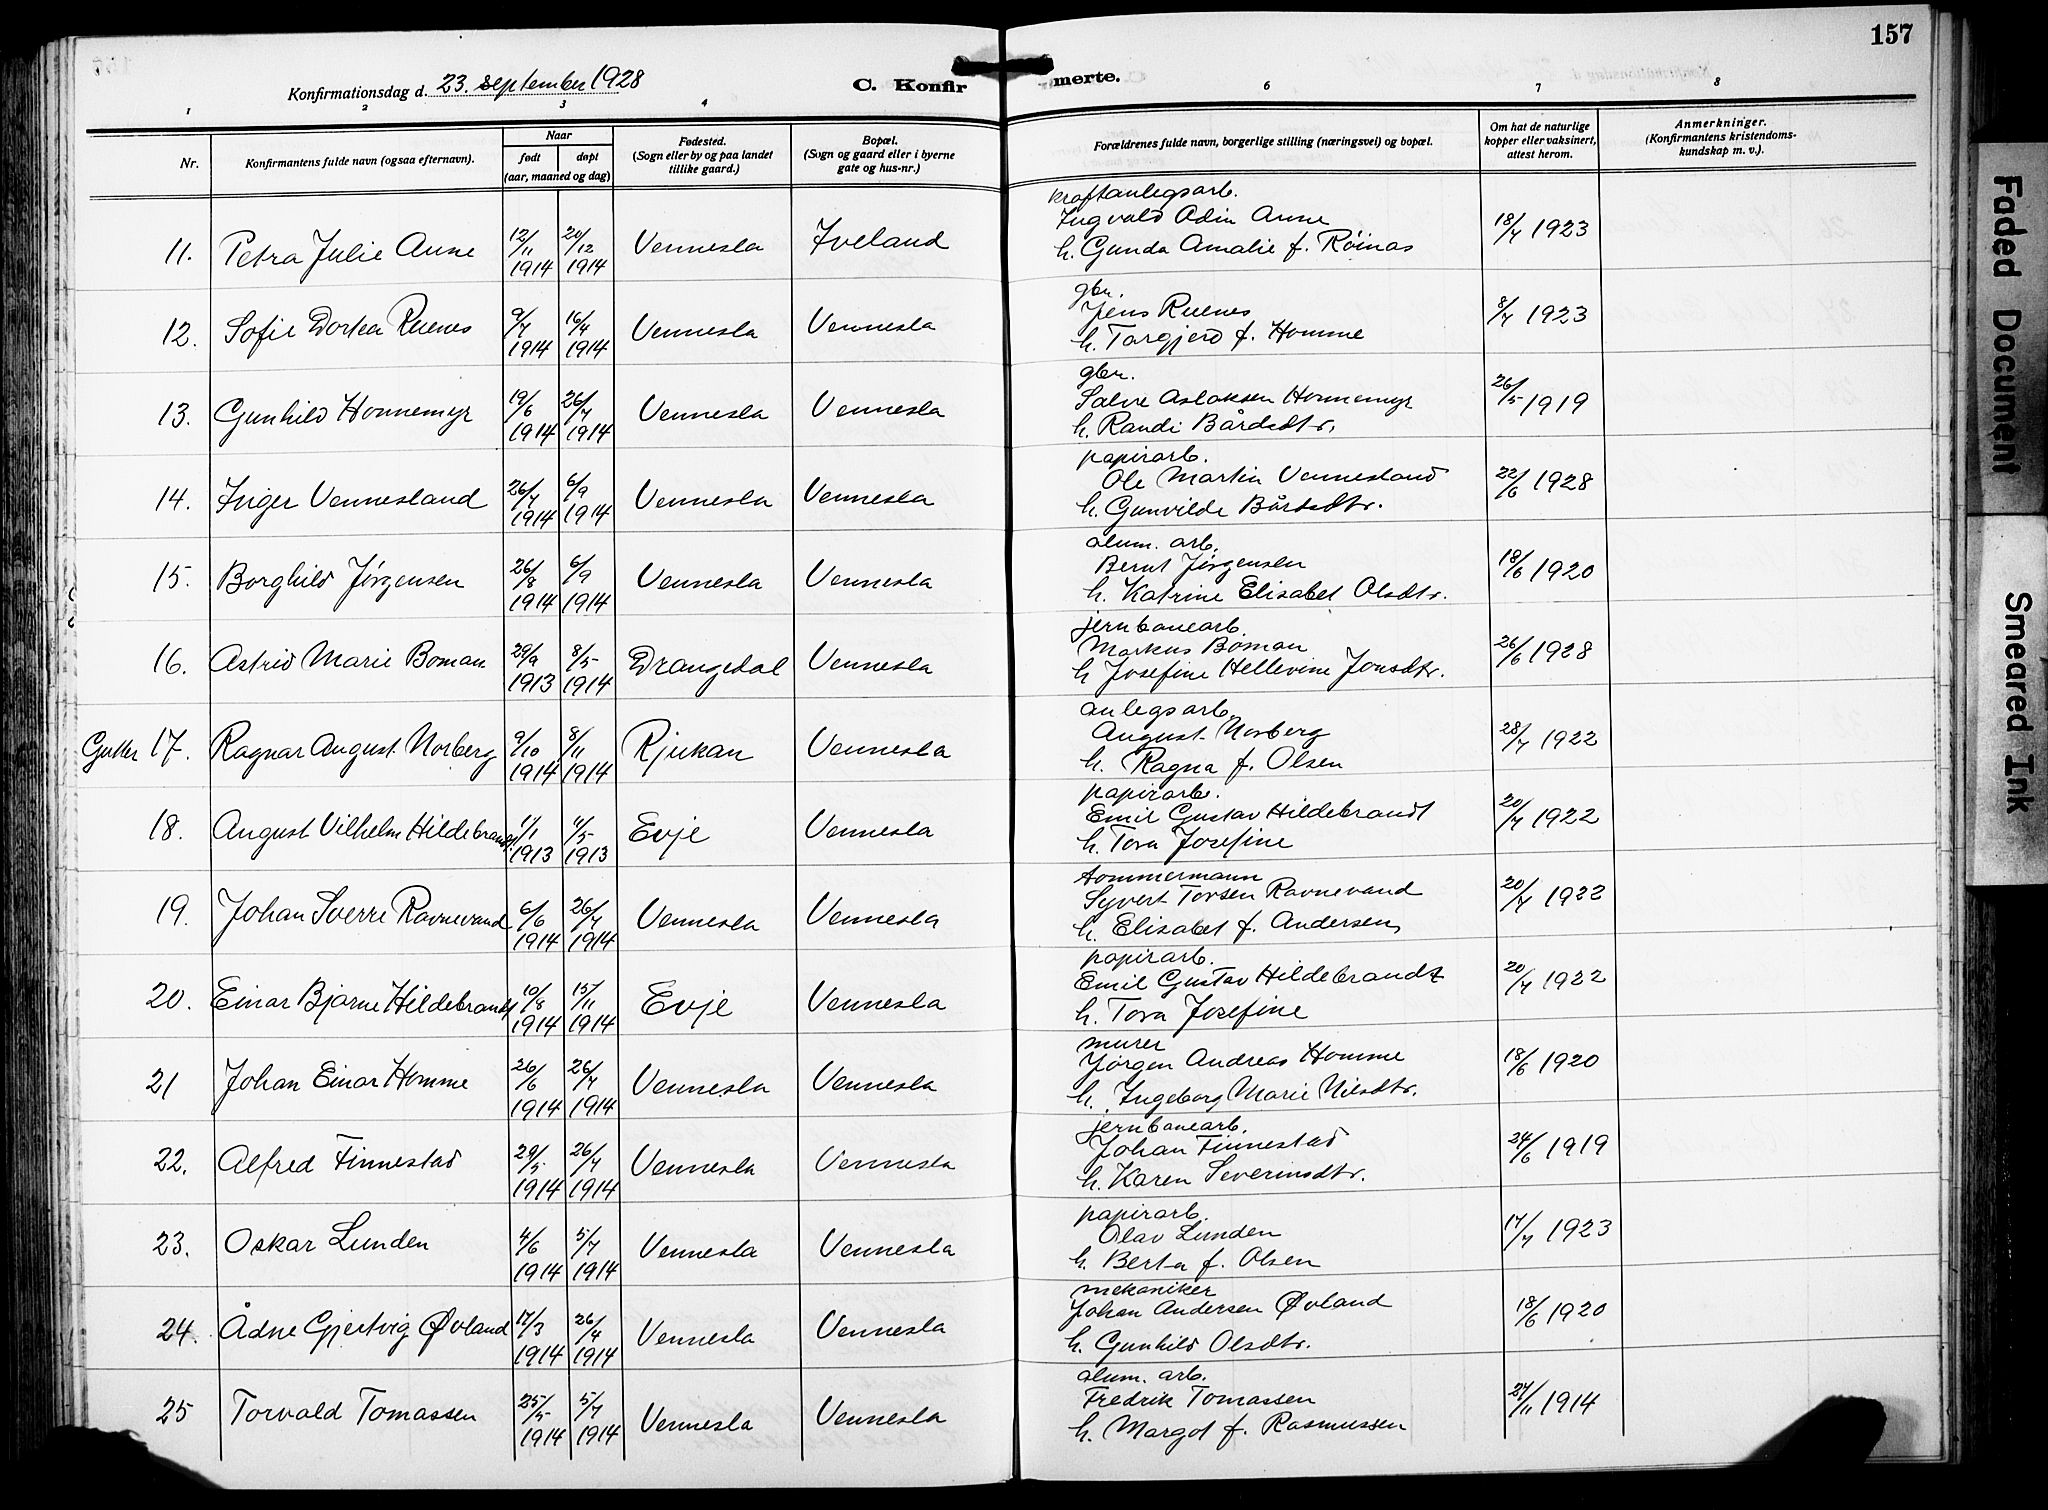 157
Konfirmationsdag d. 23. september 1928
C. Konfirmerte.
1 2 3 4 6 7 8
Nr.
Konfirmantens fulde navn (ogsaa efternavn).
Naar
født døpt
(aar, maaned og dag)
Fødested.
(Sogn eller by og paa landet
tillike gaard.)
Bopæl.
(Sogn og gaard eller i byerne
gate og hus-nr.)
Forældrenes fulde navn, borgerlige stilling (næringsvei) og bopæl.
Om hat de naturlige
kopper eller vaksinert,
attest herom.
Anmerkninger.
(Konfirmantens kristendoms-
kundskap m. v.).
kraftanlegsarb.
Ingvald Odin Aune
11. Petra Julie Aune 12/11 1914 20/12 1914 Vennesla Iveland h. Gunda Amalie f. Röinas 18/7 1923
gbr.
Jens Ruenes
12. Sofie Dortea Ruenes 9/4 1914 16/4 1914 Vennesla Vennesla h. Targjerd f. Homme 8/7 1923
gbr.
Salve Aslaksen Honnemyr
13. Gunhild Honnemyr 19/6 1914 26/7 1914 Vennesla Vennesla h. Randi Bårdsdtr. 26/5 1919
papirarb.
Ole Martin Vennesland
14. Inger Vennesland 26/7 1914 6/9 1914 Vennesla Vennesla h. Gunvilde Bårdsdtr. 22/6 1928
alum. arb.
Bernt Jørgensen
15. Borghild Jørgensen 26/8 1914 6/9 1914 Vennesla Vennesla h. Katrine Elisabet Olsdtr. 18/6 1920
jernbanearb.
Markus Boman
16. Astrid Marie Boman 29/9 1913 8/5 1914 Drangedal Vennesla h. Josefine Hellevine Jonsdtr. 26/6 1928
anlegsarb.
August Norberg
Gutter 17. Ragnar August Norberg 9/10 1914 8/11 1914 Rjukan Vennesla h. Ragna f. Olsen 28/7 1922
papirarb.
Emil Gustav Hildebrandt
18. August Vilhelm Hildebrandt 1/1 1913 11/5 1913 Evje Vennesla h. Tora Josefine 20/7 1922
tømmermann
Syvert Torsen Ravnevand
19. Johan Sverre Ravnevand 6/6 1914 26/7 1914 Vennesla Vennesla h. Elisabet f. Andersen 20/7 1922
papirarb.
Emil Gustav Hildebrandt
20. Einar Bjarne Hildebrandt 10/8 1914 15/11 1914 Evje Vennesla h. Tora Josefine 20/7 1922
murer
Jørgen Andreas Homme
21 Johan Einar Homme 26/6 1914 26/7 1914 Vennesla Vennesla h. Ingeborg Marie Nilsdtr. 18/6 1920
jernbanearb.
Johan Finnestad
22. Alfred Finnestad 29/5 1914 26/7 1914 Vennesla Vennesla h. Karen Severinsdtr. 24/6 1919
papirarb.
Olav Lunden
23. Oskar Lunden 4/6 1914 5/7 1914 Vennesla Vennesla h. Berta f. Olsen 17/7 1923
mekaniker
Johan Andersen Øvland
24. Ådne Gjertvig Øvland 17/3 1914 26/4 1914 Vennesla Vennesla h. Gunhild Olsdtr. 18/6 1920
alum. arb.
Fredrik Tomassen
25 Torvald Tomassen 25/5 1914 5/7 1914 Vennesla Vennesla h. Margot f. Rasmussen 24/11 1914
Faded Document
Smeared Ink